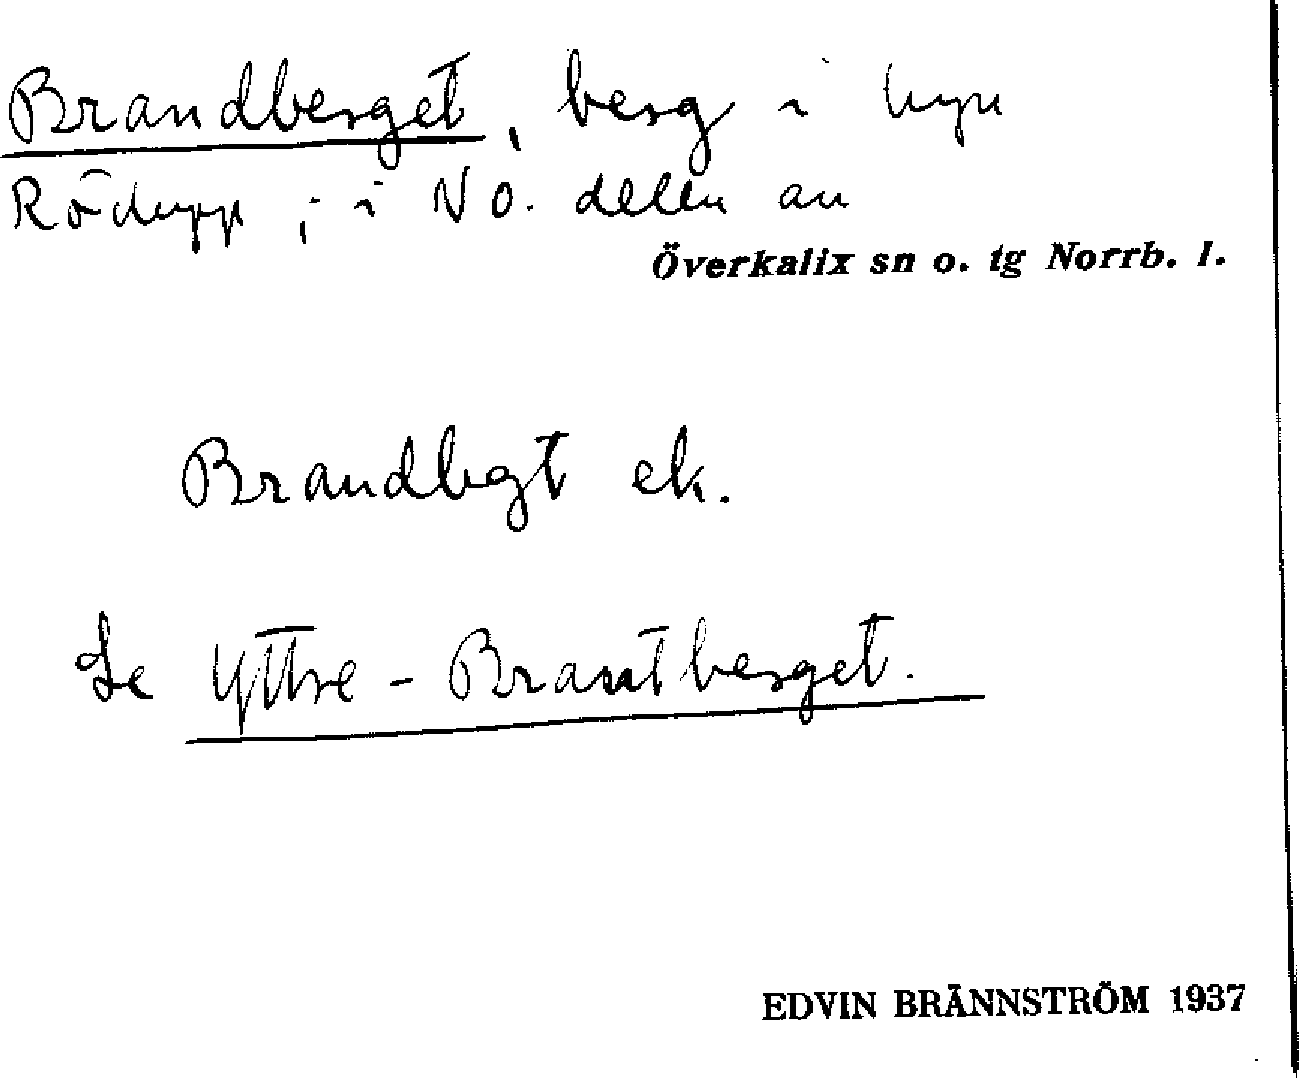 Brandberget, berg i byn
Rödupp ; i NO. delen av
Överkalix sn o. tg Norrb. l.
Brandbgt ek.
Se Yttre-Brantberget.
EDVIN BRÄNNSTRÖM 1937